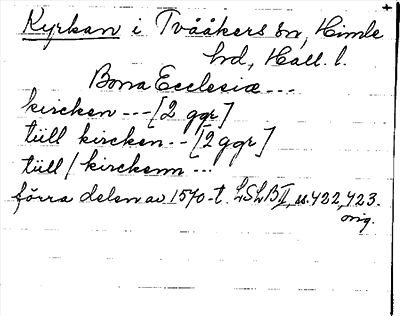 Kyrkan i Tvååkers sn, Himle
hd, Hall. l.
Bona Ecclesiæ ---
kircken --- [2 ggr]
tüll kircken -- [2 ggr]
tüll / kirckenn ---
förra delen av 1570-t. LSLBII, ss. 422, 423.
orig.